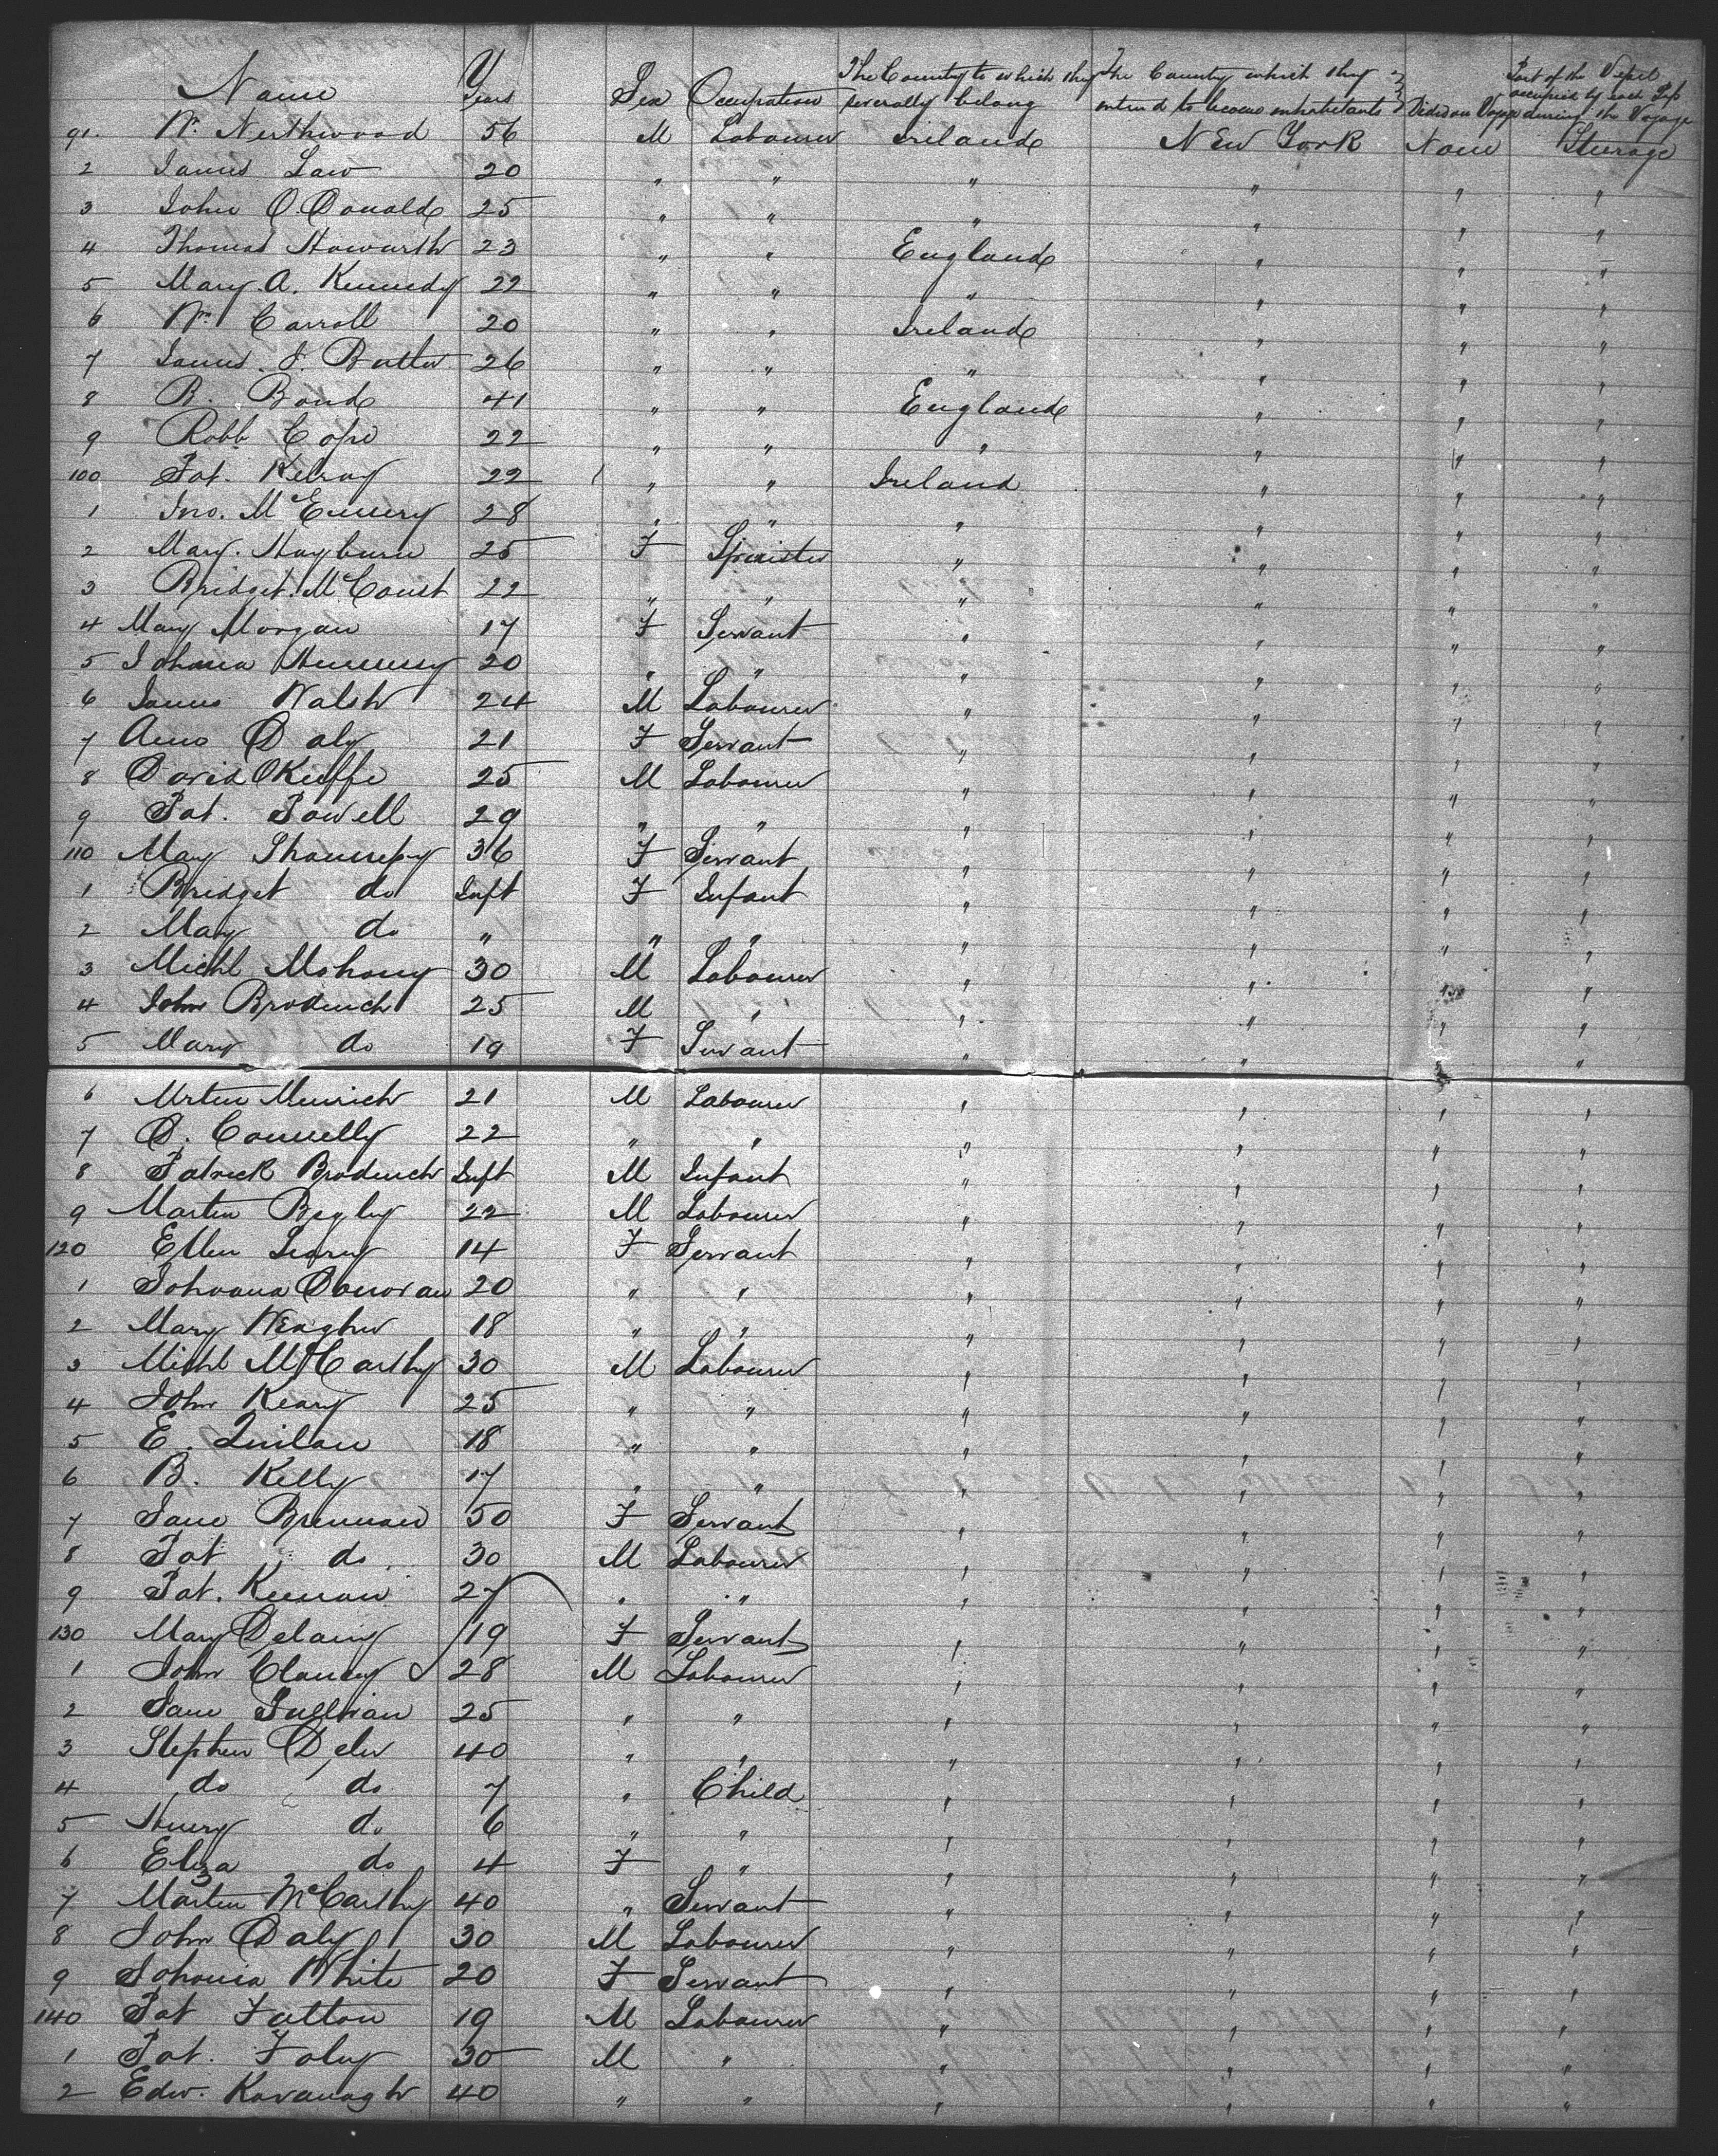 Name Years Sex Occupation The Country to which they severally belong The Country which they intend to become inhabitants Died on Voyage Part of the Vessel occupied by each during the Voyage
91. Wm Northwood 56 M Labourer Ireland New York None Steerage
2 James Law 20 " " " " " "
3 John O.Donald 25 " " " " " "
4 Thomas Howarth 23 " " England " " "
5 Mary. A. Kennedy 22 " " " " " "
6 Wm Carroll 20 " " Ireland " " "
7 James. J. Butler 26 " " " " " "
8 B. Bond 41 " " England " " "
9 Robt Cope 22 " " " " " "
100 Pat. Kelroy 22 " " Ireland " " "
1 Jno. McEnnery 28 " " " " " "
2 Mary. Hayburn 25 F Spinster " " " "
3 Bridget. McCoust 22 " " " " " "
4 Mary Morgan 17 F Servant " " " "
5 Johana Hennessy 20 " " " " " "
6 James Walsh 24 M Labourer " " " "
7 Ann Daly 21 F Servant " " " "
8 David OKeiffe 25 M Labourer " " " "
9 Pat. Powell 29 " " " " " "
110 Mary 36 F Servant " " " "
1 Bridget do Inft F Infant " " " "
2 Mary do " " " " " " "
3 Michl Mahony 30 M Labourer " " " "
4 John Broderick 25 M " " " " "
5 Mary do 19 F Servant " " " "
6 21 M Labourer " " " "
7 D. Connelly 22 " " " " " "
8 Patrick Broderick Inft M Infant " " " "
9 Martin Begley 22 M Labourer " " " "
120 Ellen Leary 14 F Servant " " " "
1 Johvana Donovan 20 " " " " " "
2 Mary 18 " " " " " "
3 Michl McCarthy 30 M Labourer " " " "
4 John Keary 25 " " " " " "
5 E. Quilan 18 " " " " " "
6 B. Kelly 17 " " " " " "
7 Jane Brennan 50 F Servant " " " "
8 Pat do 30 M Labourer " " " "
9 Pat. Keenan 27 " " " " " "
130 Mary Delany 19 F Servant " " " "
1 John Clancy 28 M Labourer " " " "
2 Jane Sullivan 25 " " " " " "
3 Stephen 40 " " " " " "
4 do do 7 " Child " " " "
5 Henry do 6 " " " " " "
6 Eliza do 4 F " " " " "
7 Martin McCarthy 40 " Servant " " " "
8 John Daly 30 M Labourer " " " "
9 Johania White 20 F Servant " " " "
140 Pat Fatton 19 M Labourer " " " "
1 Pat. Foley 30 M " " " " "
2 Edw. Kavanagh 40 " " " " " "